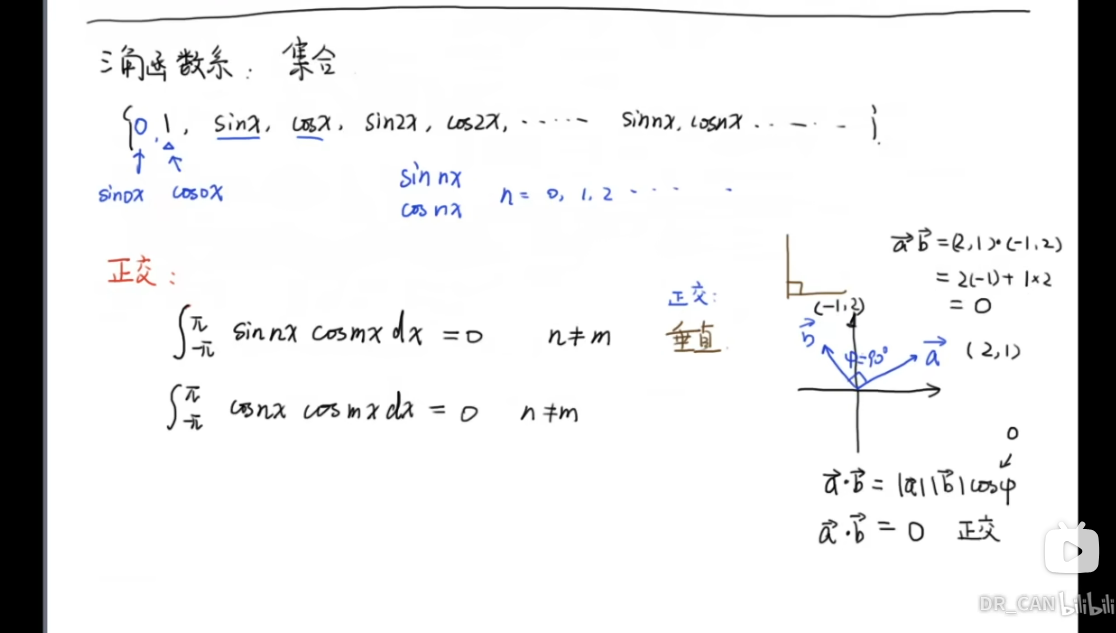 三角函数系： 集合
{0, 1, sinx, cosx, sin2x, cos2x, ······ sinnx, cosnx ······ }
sin0x cos0x
sin nx
cos nx
n = 0, 1, 2 ···· ·
正交：
∫_{-π}^{π} sin nx cos mx dx = 0 n ≠ m
∫_{-π}^{π} cos nx cos mx dx = 0 n ≠ m
正交：
垂直
a⃗ b⃗ = (2,1)·(-1,2)
= 2(-1) + 1×2
= 0
(-1,2)
b⃗ φ=90° a⃗ (2,1)
0
a⃗·b⃗ = |a||b⃗|cosφ
a⃗·b⃗ = 0 正交
DR_CAN bilibili